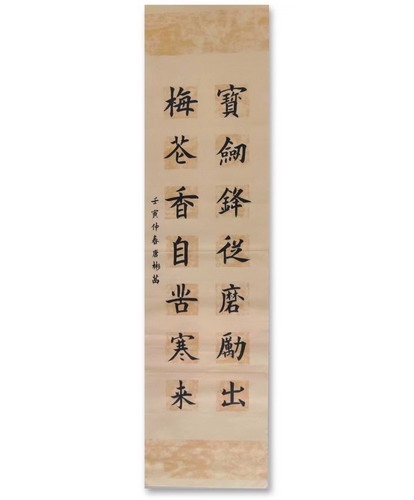 寶劍鋒從磨勵出
梅花香自苦寒来
壬寅仲春唐彬茜